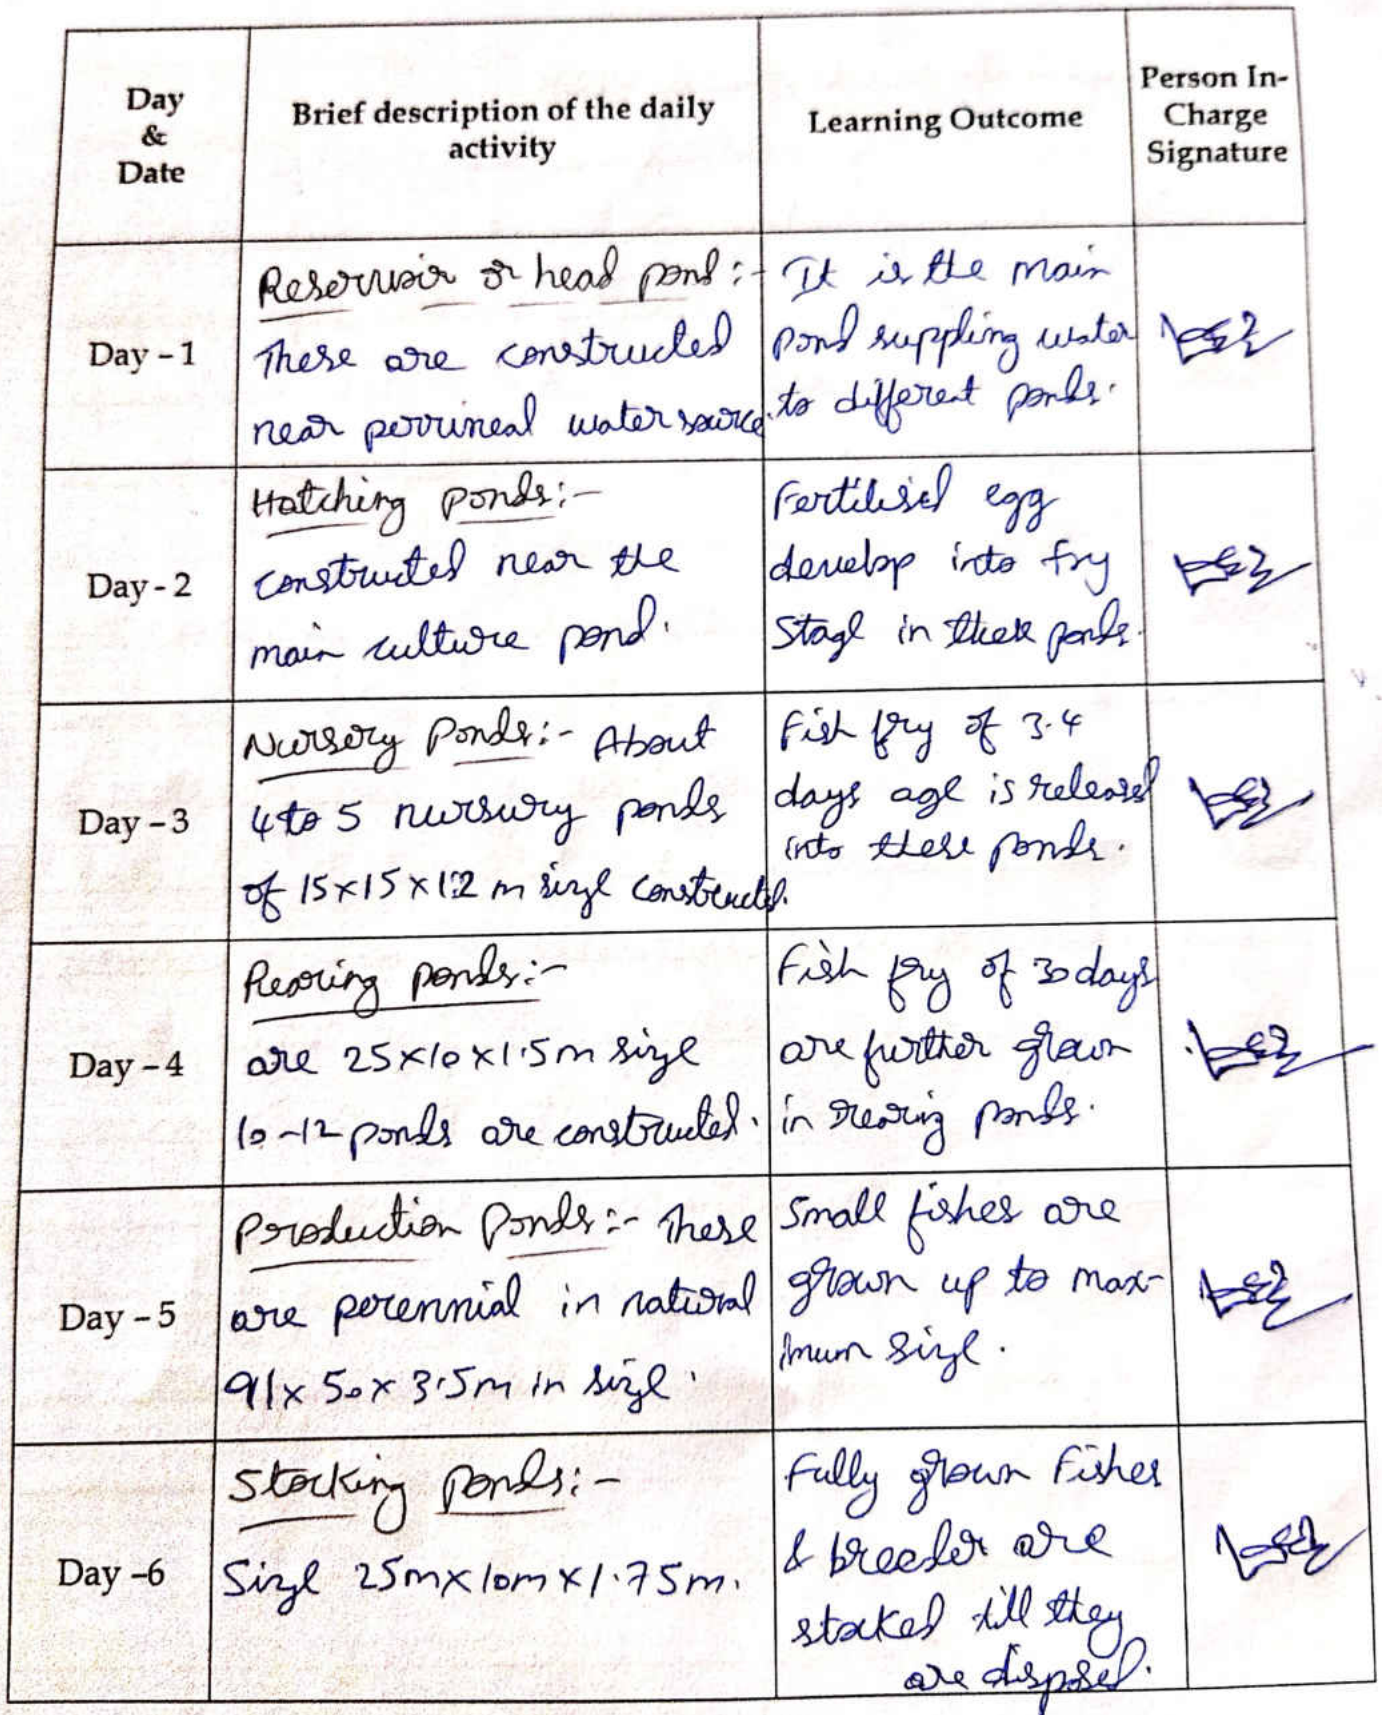 Day
&
Date
Brief description of the daily
activity
Learning Outcome
Person In-
Charge
Signature
Day - 1
Reservoir or head pond :-
These are constructed
near perrineal water source.
It is the main
pond suppling water
to different ponds.
Day - 2
Hatching ponds:-
constructed near the
main culture pond.
Fertilised egg
develop into fry
Stage in these ponds.
Day - 3
Nursery Ponds:- About
4 to 5 nursury ponds
of 15x15x1.2 m size constructed.
Fish fry of 3-4
days age is released
into these ponds.
Day - 4
Rearing ponds:-
are 25x10x1.5m size
10-12 ponds are constructed.
Fish fry of 30 days
are further grown
in rearing ponds.
Day - 5
Production Ponds:- These
are perennial in natural
91x50x3.5m in size.
Small fishes are
grown up to max-
imum size.
Day -6
Stocking ponds:-
Size 25mx10mx1.75m.
Fully grown Fishes
& breeder are
stocked till they
are disposed.